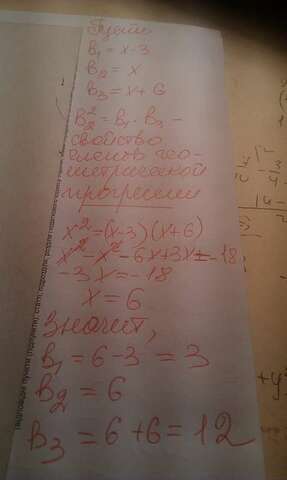 Пусть
b₁ = x-3
b₂ = x
b₃ = x+6
b₂² = b₁ · b₃ -
свойство
членов гео-
метрической
прогрессии
x² = (x-3)(x+6)
x² - x² - 6x + 3x = -18
-3x = -18
x = 6
Значит,
b₁ = 6-3 = 3
b₂ = 6
b₃ = 6+6 = 12